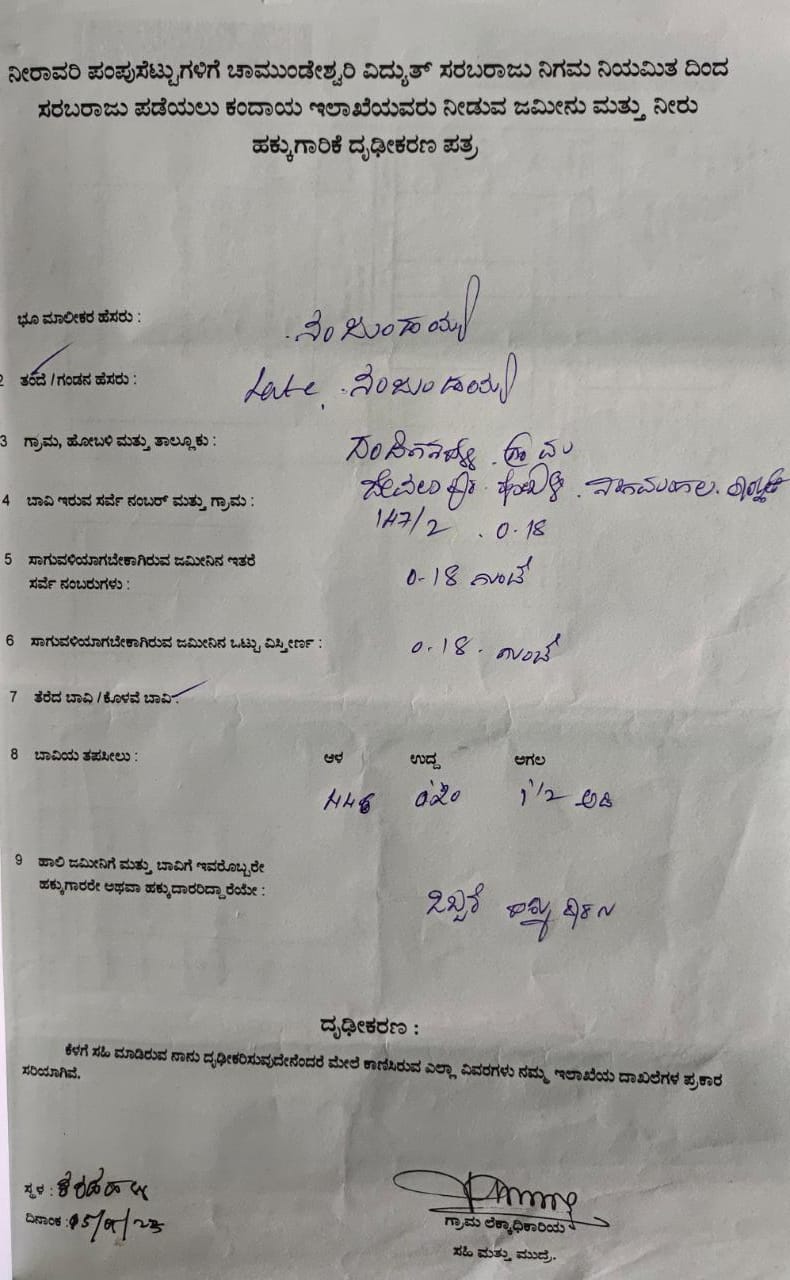 ನೀರಾವರಿ ಪಂಪುಸೆಟ್ಟುಗಳಿಗೆ ಚಾಮುಂಡೇಶ್ವರಿ ವಿದ್ಯುತ್ ಸರಬರಾಜು ನಿಗಮ ನಿಯಮಿತ ದಿಂದ
ಸರಬರಾಜು ಪಡೆಯಲು ಕಂದಾಯ ಇಲಾಖೆಯವರು ನೀಡುವ ಜಮೀನು ಮತ್ತು ನೀರು
ಹಕ್ಕುಗಾರಿಕೆ ದೃಢೀಕರಣ ಪತ್ರ
ಭೂ ಮಾಲೀಕರ ಹೆಸರು :
2 ತಂದೆ / ಗಂಡನ ಹೆಸರು : Late.
3 ಗ್ರಾಮ, ಹೋಬಳಿ ಮತ್ತು ತಾಲ್ಲೂಕು : ಗ್ರಾಮ
ನಾಗಮಂಗಲ.
4 ಬಾವಿ ಇರುವ ಸರ್ವೆ ನಂಬರ್ ಮತ್ತು ಗ್ರಾಮ : 147/2 . 0-18
5 ಸಾಗುವಳಿಯಾಗಬೇಕಾಗಿರುವ ಜಮೀನಿನ ಇತರೆ
ಸರ್ವೆ ನಂಬರುಗಳು : 0-18 ಗುಂಟೆ
6 ಸಾಗುವಳಿಯಾಗಬೇಕಾಗಿರುವ ಜಮೀನಿನ ಒಟ್ಟು ವಿಸ್ತೀರ್ಣ : 0-18. ಗುಂಟೆ
7 ತೆರೆದ ಬಾವಿ / ಕೊಳವೆ ಬಾವಿ :
8 ಬಾವಿಯ ತಪಸೀಲು : ಆಳ ಉದ್ದ ಅಗಲ
1 1/2 ಅಡಿ
9 ಹಾಲಿ ಜಮೀನಿಗೆ ಮತ್ತು ಬಾವಿಗೆ ಇವರೊಬ್ಬರೇ
ಹಕ್ಕುಗಾರರೇ ಅಥವಾ ಹಕ್ಕುದಾರರಿದ್ದಾರೆಯೇ :
ದೃಢೀಕರಣ :
ಕೆಳಗೆ ಸಹಿ ಮಾಡಿರುವ ನಾನು ದೃಢೀಕರಿಸುವುದೇನೆಂದರೆ ಮೇಲೆ ಕಾಣಿಸಿರುವ ಎಲ್ಲಾ ವಿವರಗಳು ನಮ್ಮ ಇಲಾಖೆಯ ದಾಖಲೆಗಳ ಪ್ರಕಾರ
ಸರಿಯಾಗಿವೆ.
ಸ್ಥಳ :
ದಿನಾಂಕ :
ಗ್ರಾಮ ಲೆಕ್ಕಾಧಿಕಾರಿಯ
ಸಹಿ ಮತ್ತು ಮುದ್ರೆ.